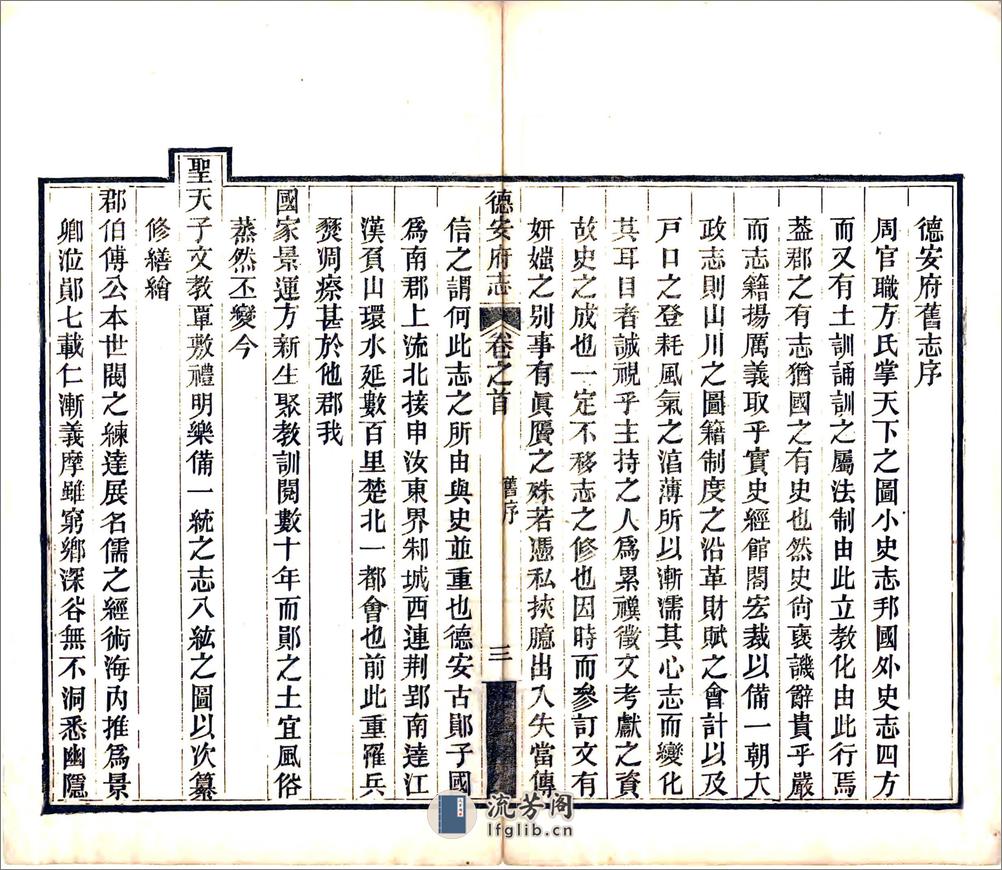 德安府舊志序
周官職方氏掌天下之圖小史志邦國外史志四方
而又有土訓誦訓之屬法制由此立教化由此行焉
葢郡之有志猶國之有史也然史尙褒譏辭貴乎嚴
而志籍揚厲義取乎實史經館閣宏裁以備一朝大
政志則山川之圖籍制度之沿革財賦之會計以及
戸口之登耗風氣之湻薄所以漸濡其心志而變化
其耳目者誠視乎主持之人爲累禩徵文考獻之資
故史之成也一定不移志之修也因時而參訂文有
妍媸之别事有眞贗之殊若憑私挾臆出入失當傳
德安府志
卷之首
舊序
三
信之謂何此志之所由與史並重也德安古鄖子國
爲南郡上流北接申汝東界邾城西連荆郢南逹江
漢負山環水延數百里楚北一都會也前此重罹兵
燹凋瘵甚於他郡我
國家景運方新生聚教訓閱數十年而鄖之土宜風俗
蒸然丕變今
聖天子文教覃敷禮明樂備一統之志八紘之圖以次纂
修繕繪
郡伯傅公本世閥之練達展名儒之經術海内推爲景
卿涖鄖七載仁漸義摩雖窮鄉深谷無不洞悉幽隱
流芳阁
lfglib.cn